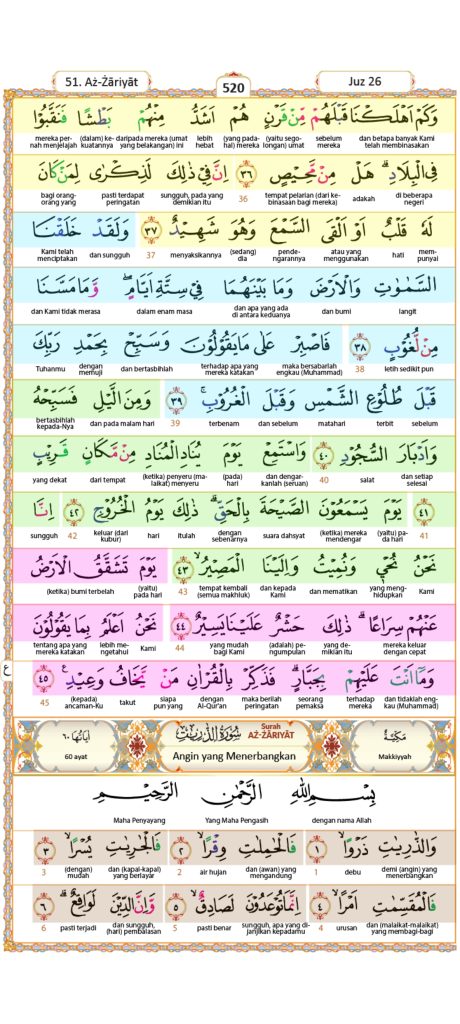 51. Aż-Żāriyāt
520
Juz 26
وَكَمْ اَهْلَكْنَا قَبْلَهُمْ مِّنْ قَرْنٍ هُمْ اَشَدُّ مِنْهُمْ بَطْشًا فَنَقَّبُوْا
dan betapa banyak Kami telah membinasakan sebelum mereka (yaitu sego-longan) umat (yang pada-hal) mereka lebih hebat daripada mereka (umat yang belakangan) ini (dalam) ke-kuatannya mereka per-nah menjelajah
فِى الْبِلَادِۗ هَلْ مِنْ مَّحِيْصٍ ٣٦ اِنَّ فِيْ ذٰلِكَ لَذِكْرٰى لِمَنْ كَانَ
di beberapa negeri adakah tempat pelarian (dari ke-binasaan bagi mereka) 36 sungguh, pada yang demikian itu pasti terdapat peringatan bagi orang-orang yang
لَهٗ قَلْبٌ اَوْ اَلْقَى السَّمْعَ وَهُوَ شَهِيْدٌ ٣٧ وَلَقَدْ خَلَقْنَا
mem-punyai hati atau yang menggunakan pende-ngarannya (sedang) dia menyaksikannya 37 dan sungguh Kami telah menciptakan
السَّمٰوٰتِ وَالْاَرْضَ وَمَا بَيْنَهُمَا فِيْ سِتَّةِ اَيَّامٍۖ وَّمَا مَسَّنَا
langit dan bumi dan apa yang ada di antara keduanya dalam enam masa dan Kami tidak merasa
مِنْ لُّغُوْبٍ ٣٨ فَاصْبِرْ عَلٰى مَا يَقُوْلُوْنَ وَسَبِّحْ بِحَمْدِ رَبِّكَ
letih sedikit pun 38 maka bersabarlah engkau (Muhammad) terhadap apa yang mereka katakan dan bertasbihlah dengan memuji Tuhanmu
قَبْلَ طُلُوْعِ الشَّمْسِ وَقَبْلَ الْغُرُوْبِ ٣٩ وَمِنَ الَّيْلِ فَسَبِّحْهُ
sebelum terbit matahari dan sebelum terbenam 39 dan pada malam hari bertasbihlah kepada-Nya
وَاَدْبَارَ السُّجُوْدِ ٤٠ وَاسْتَمِعْ يَوْمَ يُنَادِ الْمُنَادِ مِنْ مَّكَانٍ قَرِيْبٍ
dan setiap selesai salat 40 dan dengar-kanlah (seruan) (pada) hari (ketika) penyeru (ma-laikat) menyeru dari tempat yang dekat
٤١ يَوْمَ يَسْمَعُوْنَ الصَّيْحَةَ بِالْحَقِّۗ ذٰلِكَ يَوْمُ الْخُرُوْجِ ٤٢ اِنَّا
41 (yaitu) pa-da hari (ketika) mereka mendengar suara dahsyat dengan sebenarnya itulah hari keluar (dari kubur) 42 sungguh
نَحْنُ نُحْيٖ وَنُمِيْتُ وَاِلَيْنَا الْمَصِيْرُۙ ٤٣ يَوْمَ تَشَقَّقُ الْاَرْضُ
Kami yang meng-hidupkan dan mematikan dan kepada Kami tempat kembali (semua makhluk) 43 (yaitu) pada hari (ketika) bumi terbelah
عَنْهُمْ سِرَاعًاۗ ذٰلِكَ حَشْرٌ عَلَيْنَا يَسِيْرٌ ٤٤ نَحْنُ اَعْلَمُ بِمَا يَقُوْلُوْنَ
mereka keluar dengan cepat yang de-mikian itu (adalah) pe-ngumpulan yang mudah bagi Kami 44 Kami lebih me-ngetahui tentang apa yang mereka katakan
وَمَآ اَنْتَ عَلَيْهِمْ بِجَبَّارٍۗ فَذَكِّرْ بِالْقُرْاٰنِ مَنْ يَّخَافُ وَعِيْدِ ٤٥
dan tidaklah eng-kau (Muhammad) terhadap mereka seorang pemaksa maka berilah peringatan dengan Al-Qur'an siapa pun yang takut (kepada) ancaman-Ku 45
ع
مَكِّيَّة
Makkiyyah
سُوْرَةُ الذّٰرِيٰتِ
Surah
AŻ-ŻĀRIYĀT
Angin yang Menerbangkan
اٰيَاتُهَا ٦٠
60 ayat
بِسْمِ اللّٰهِ الرَّحْمٰنِ الرَّحِيْمِ
dengan nama Allah Yang Maha Pengasih Maha Penyayang
وَالذّٰرِيٰتِ ذَرْوًاۙ ١ فَالْحٰمِلٰتِ وِقْرًاۙ ٢ فَالْجٰرِيٰتِ يُسْرًاۙ ٣
demi (angin) yang menerbangkan debu 1 dan (awan) yang mengandung air hujan 2 dan (kapal-kapal) yang berlayar (dengan) mudah 3
فَالْمُقَسِّمٰتِ اَمْرًاۙ ٤ اِنَّمَا تُوْعَدُوْنَ لَصَادِقٌۙ ٥ وَّاِنَّ الدِّيْنَ لَوَاقِعٌۗ ٦
dan (malaikat-malaikat) yang membagi-bagi urusan 4 sungguh, apa yang di-janjikan kepadamu pasti benar 5 dan sungguh, (hari) pembalasan pasti terjadi 6